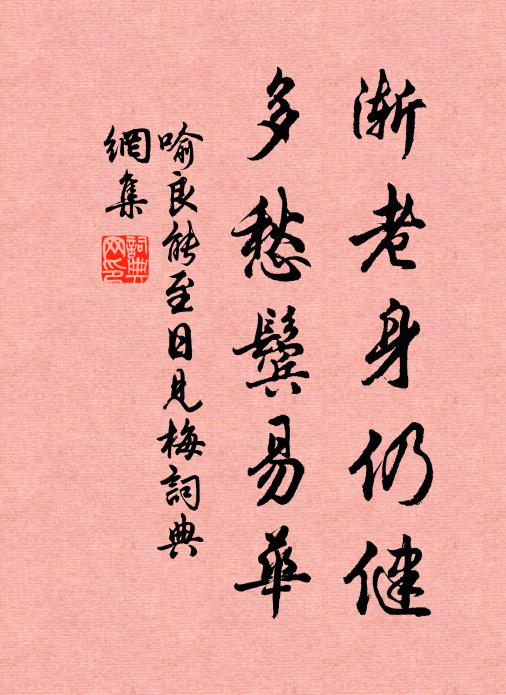 漸老身仍健
多愁鬢易華
喻良能至日見梅詞典
網集
詞典
网印